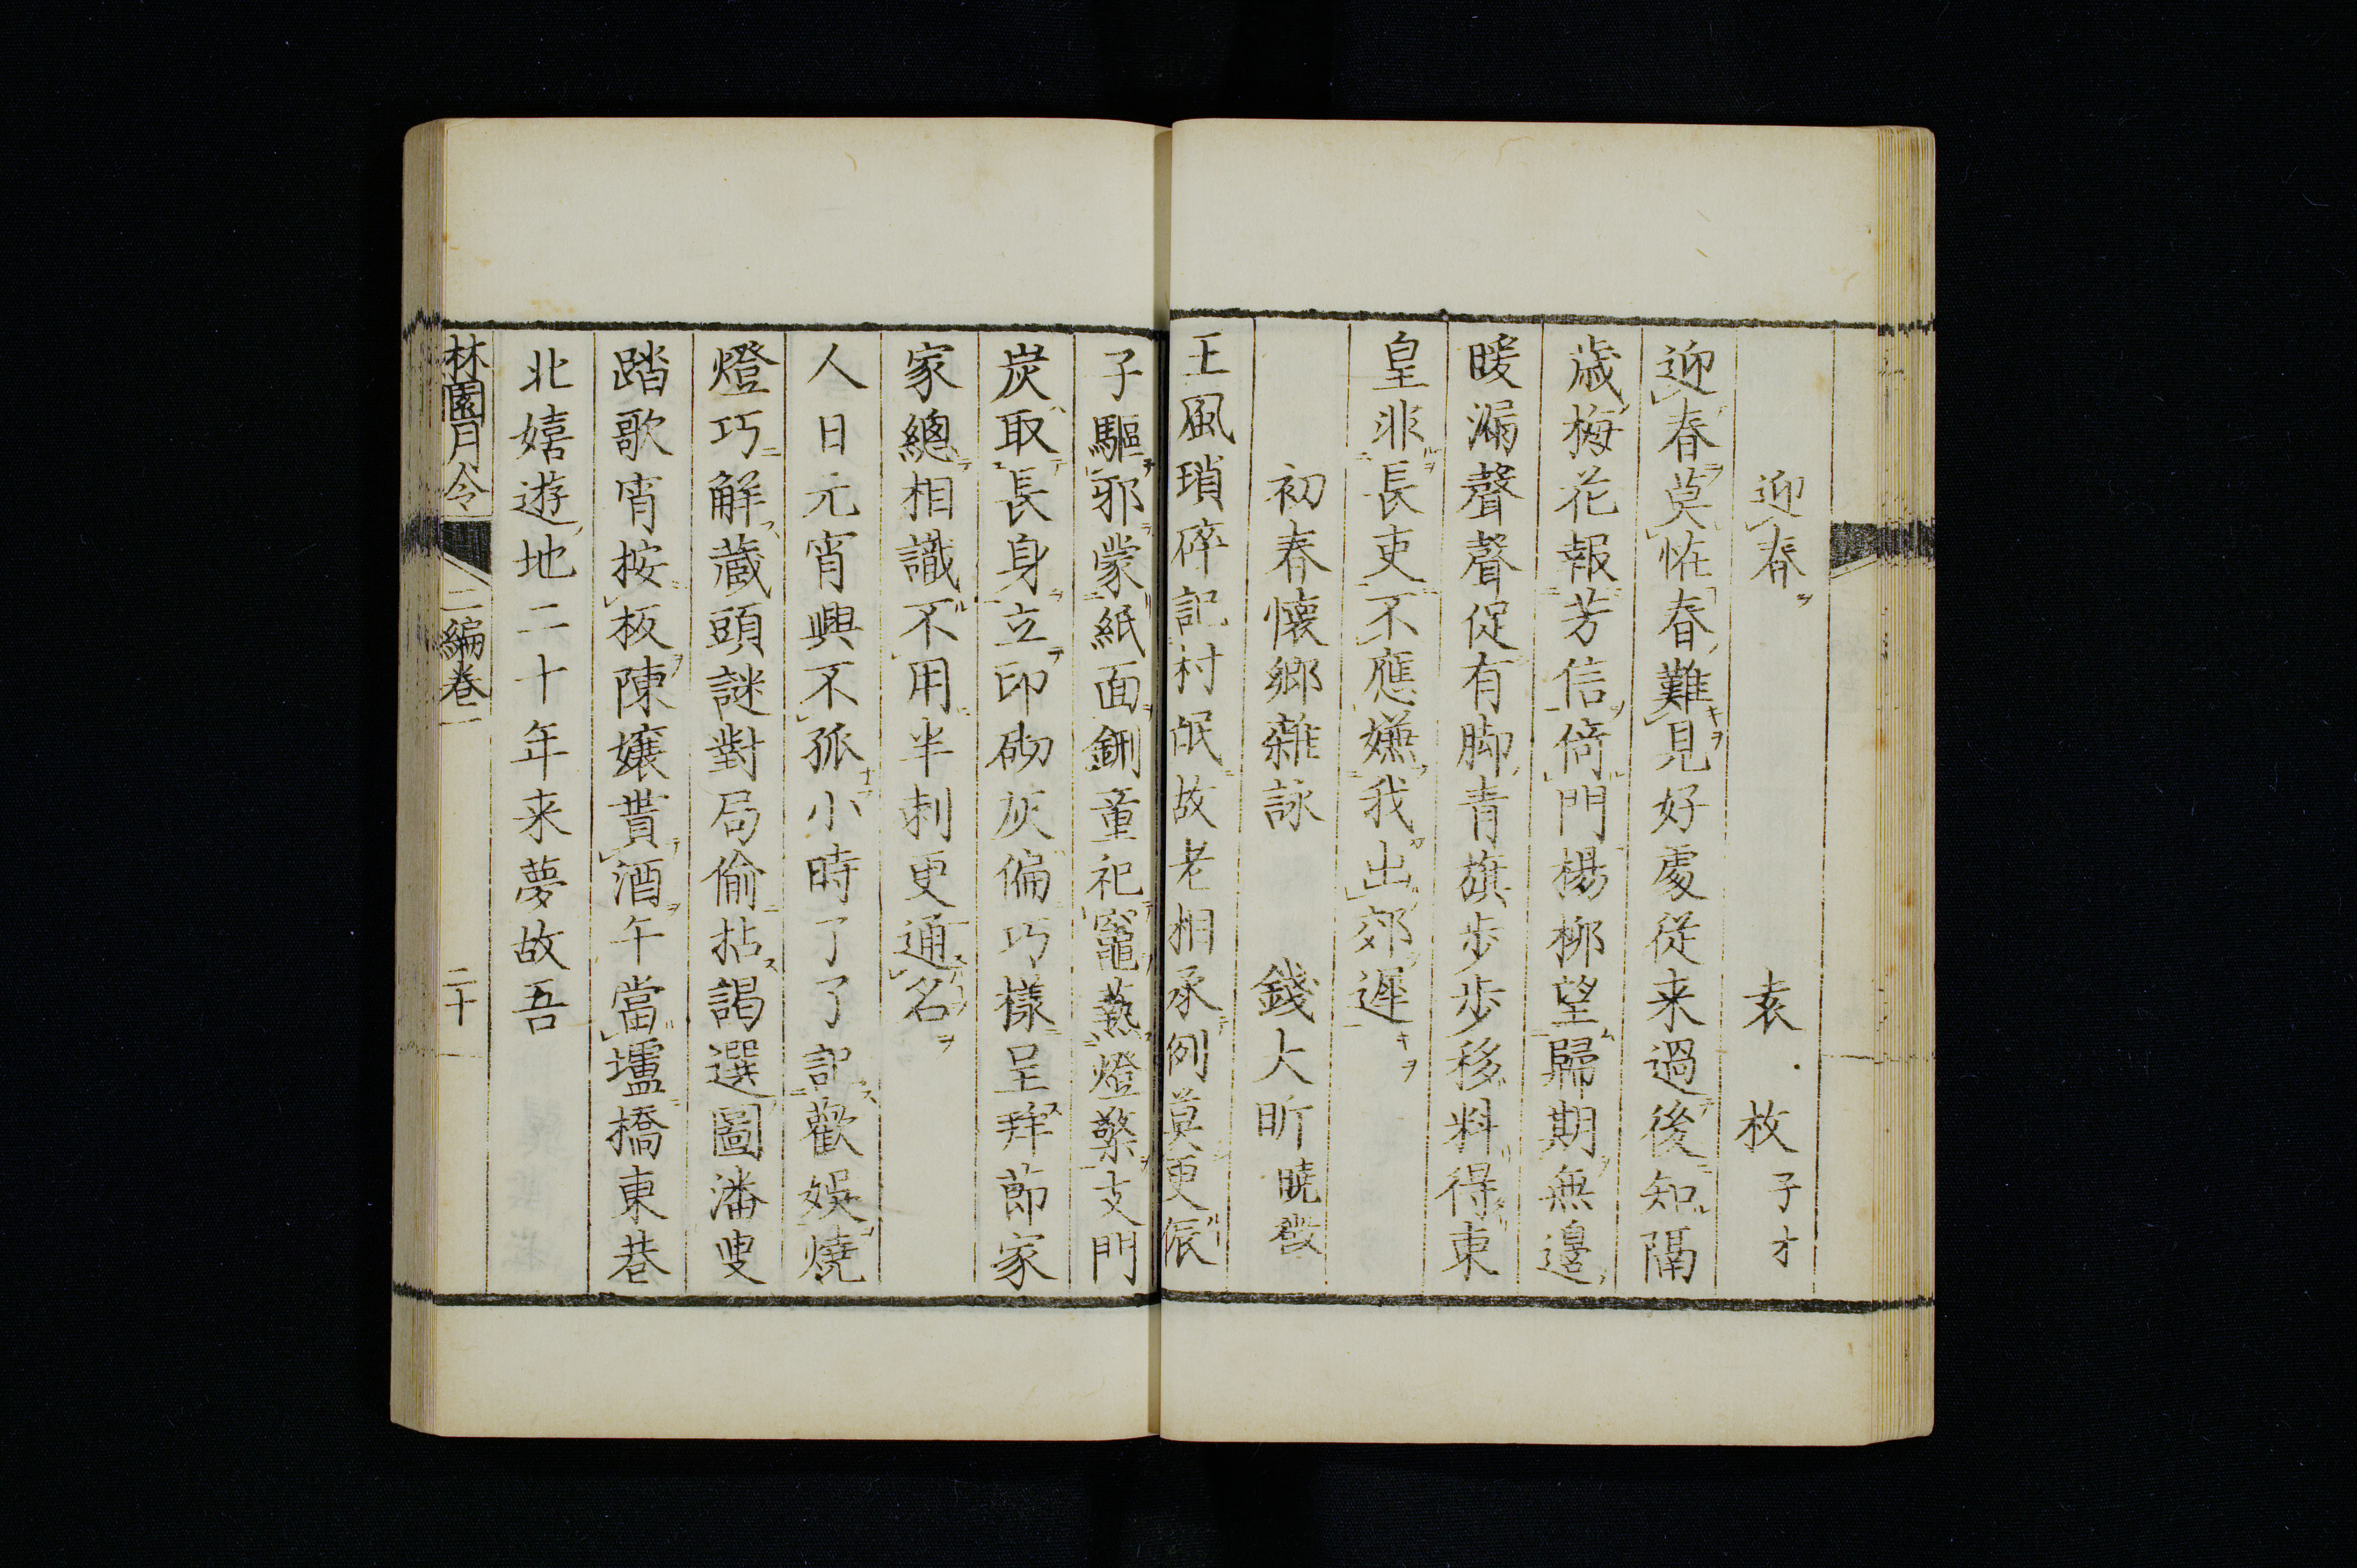 迎春 袁枚子才
迎春莫怪春難見好處從来過後知隔
歳梅花報芳信倚門楊柳望歸期無邊
暖漏聲聲促有脚青旗歩歩移料得東
皇非長吏不應嫌我出郊遲
初春懐郷雜詠 錢大昕曉徴
王風瑣碎記村氓故老相承例莫更侲
子驅邪蒙紙面鍘童祀竈爇燈檠支門
炭取長身立印砌灰偏巧樣呈拜節家
家總相識不用半刺更通名
人日元宵興不孤小時了了記歡娯燒
燈巧解蔵頭謎對局偷拈謁選圖潘叟
踏歌宵按板陳嬢貰酒午當壚橋東巷
北嬉遊地二十年来夢故吾
林園月令 二編卷一 二十